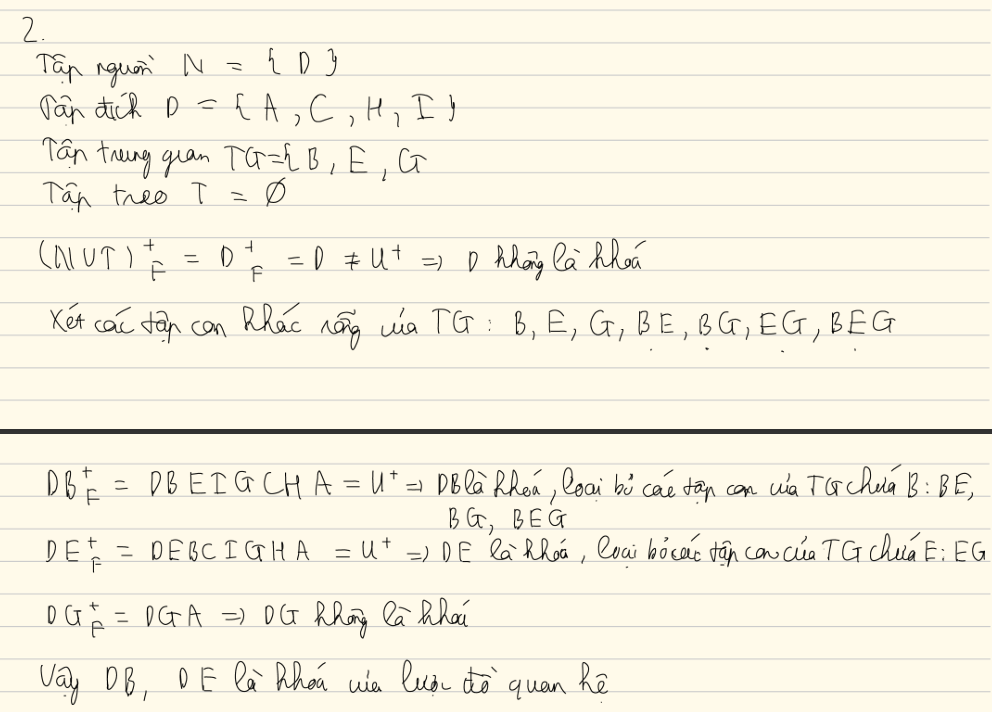 2.
Tập nguồn N = { D }
Tập đích D = { A , C , H , I }
Tập trung gian TG={ B , E , G
Tập treo T = Ø
(NUT)⁺F = D⁺F = D ≠ U⁺ => D không là khoá
Xét các tập con khác rỗng của TG : B, E, G, BE, BG, EG, BEG
DB⁺F = DBEIGCHA = U⁺ => DB là khoá, loại bỏ các tập con của TG chứa B : BE,
BG, BEG
DE⁺F = DEBCIGHA = U⁺ => DE là khoá, loại bỏ các tập con của TG chứa E : EG
DG⁺F = DGA => DG không là khoá
Vậy DB, DE là khoá của lược đồ quan hệ